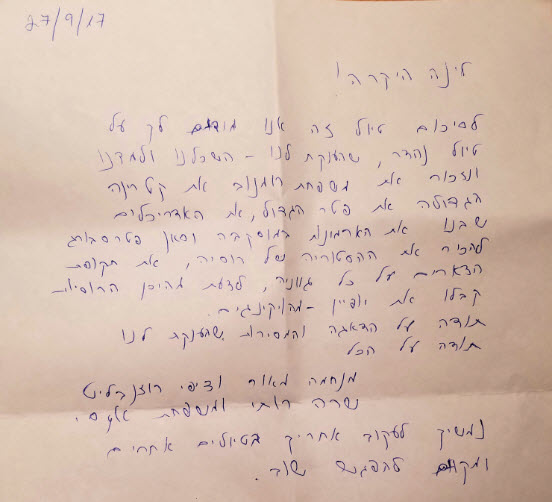 27/9/17
לינה היקרה!
לסיכום טיול זה אנו מודים לך על
טיול נהדר, שהענקת לנו - השכלנו ולמדנו
ונזכור את משפחת רומנוב את קטרינה
הגדולה את פטר הגדול, את האדריכלים
שבנו את הארמונות במוסקבה וסאן פטרסבורג
להכיר את ההסטוריה של רוסיה, את תקופת
הצארים על כל גווניה, לדעת מהיכן הרוסיות
קבלו את יופיין - מהויקינגים.
תודה על הדאגה והמסירות שהענקת לנו
תודה על הכל
מנחמה מאור וציפי רוזנבליט
שרה רותי ומשפחת
נמשיך לעקוב אחריך בטיולים אחרים
ומקום להפגש שוב.